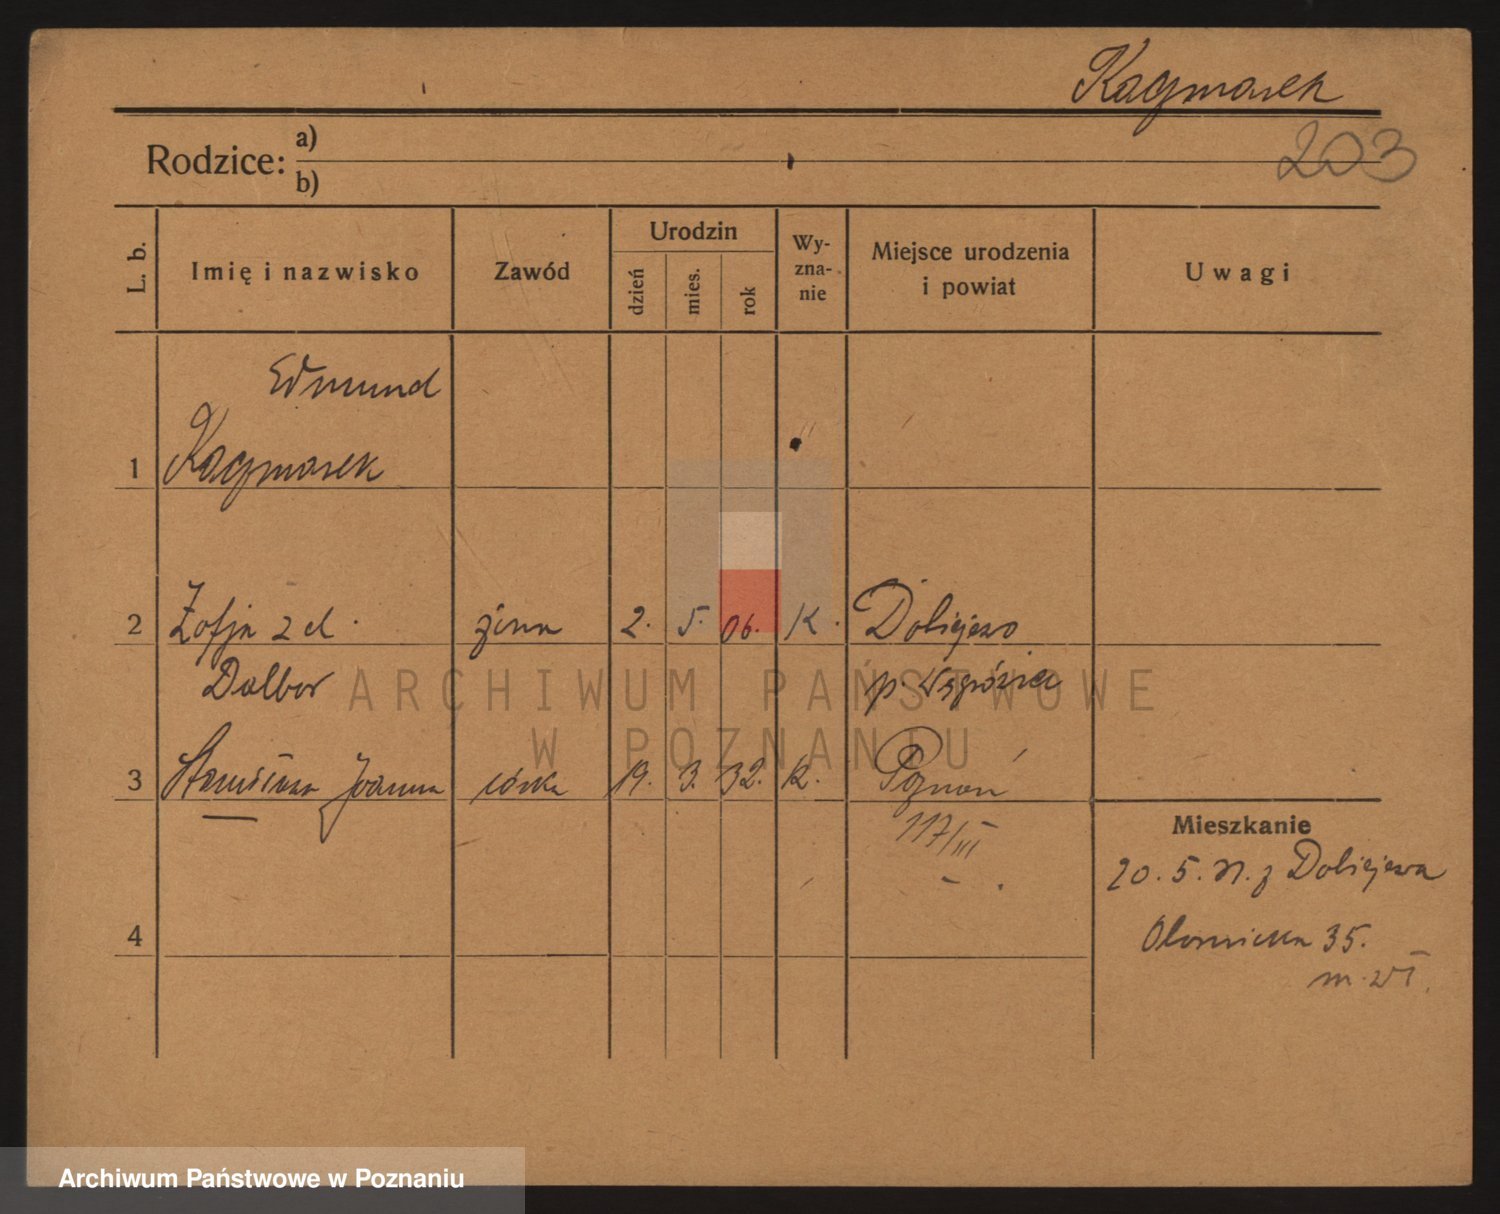 Kaczmarek
203
Rodzice: a)
b)
L. b.
Imię i nazwisko
Zawód
Urodzin
dzień
mies.
rok
Wy-
zna-
nie
Miejsce urodzenia
i powiat
Uwagi
Edmund
1 Kaczmarek
2 Zofja z d. żona 2. 5. 06. K. Dobiejewo
Dalbor p.
3 Stanisława Joanna córka 19. 3. 32. K. Poznań
117/III
Mieszkanie
20. 5. 31. z Dobiejewa
35.
4
m.
ARCHIWUM PAŃSTWOWE
W POZNANIU
Archiwum Państwowe w Poznaniu